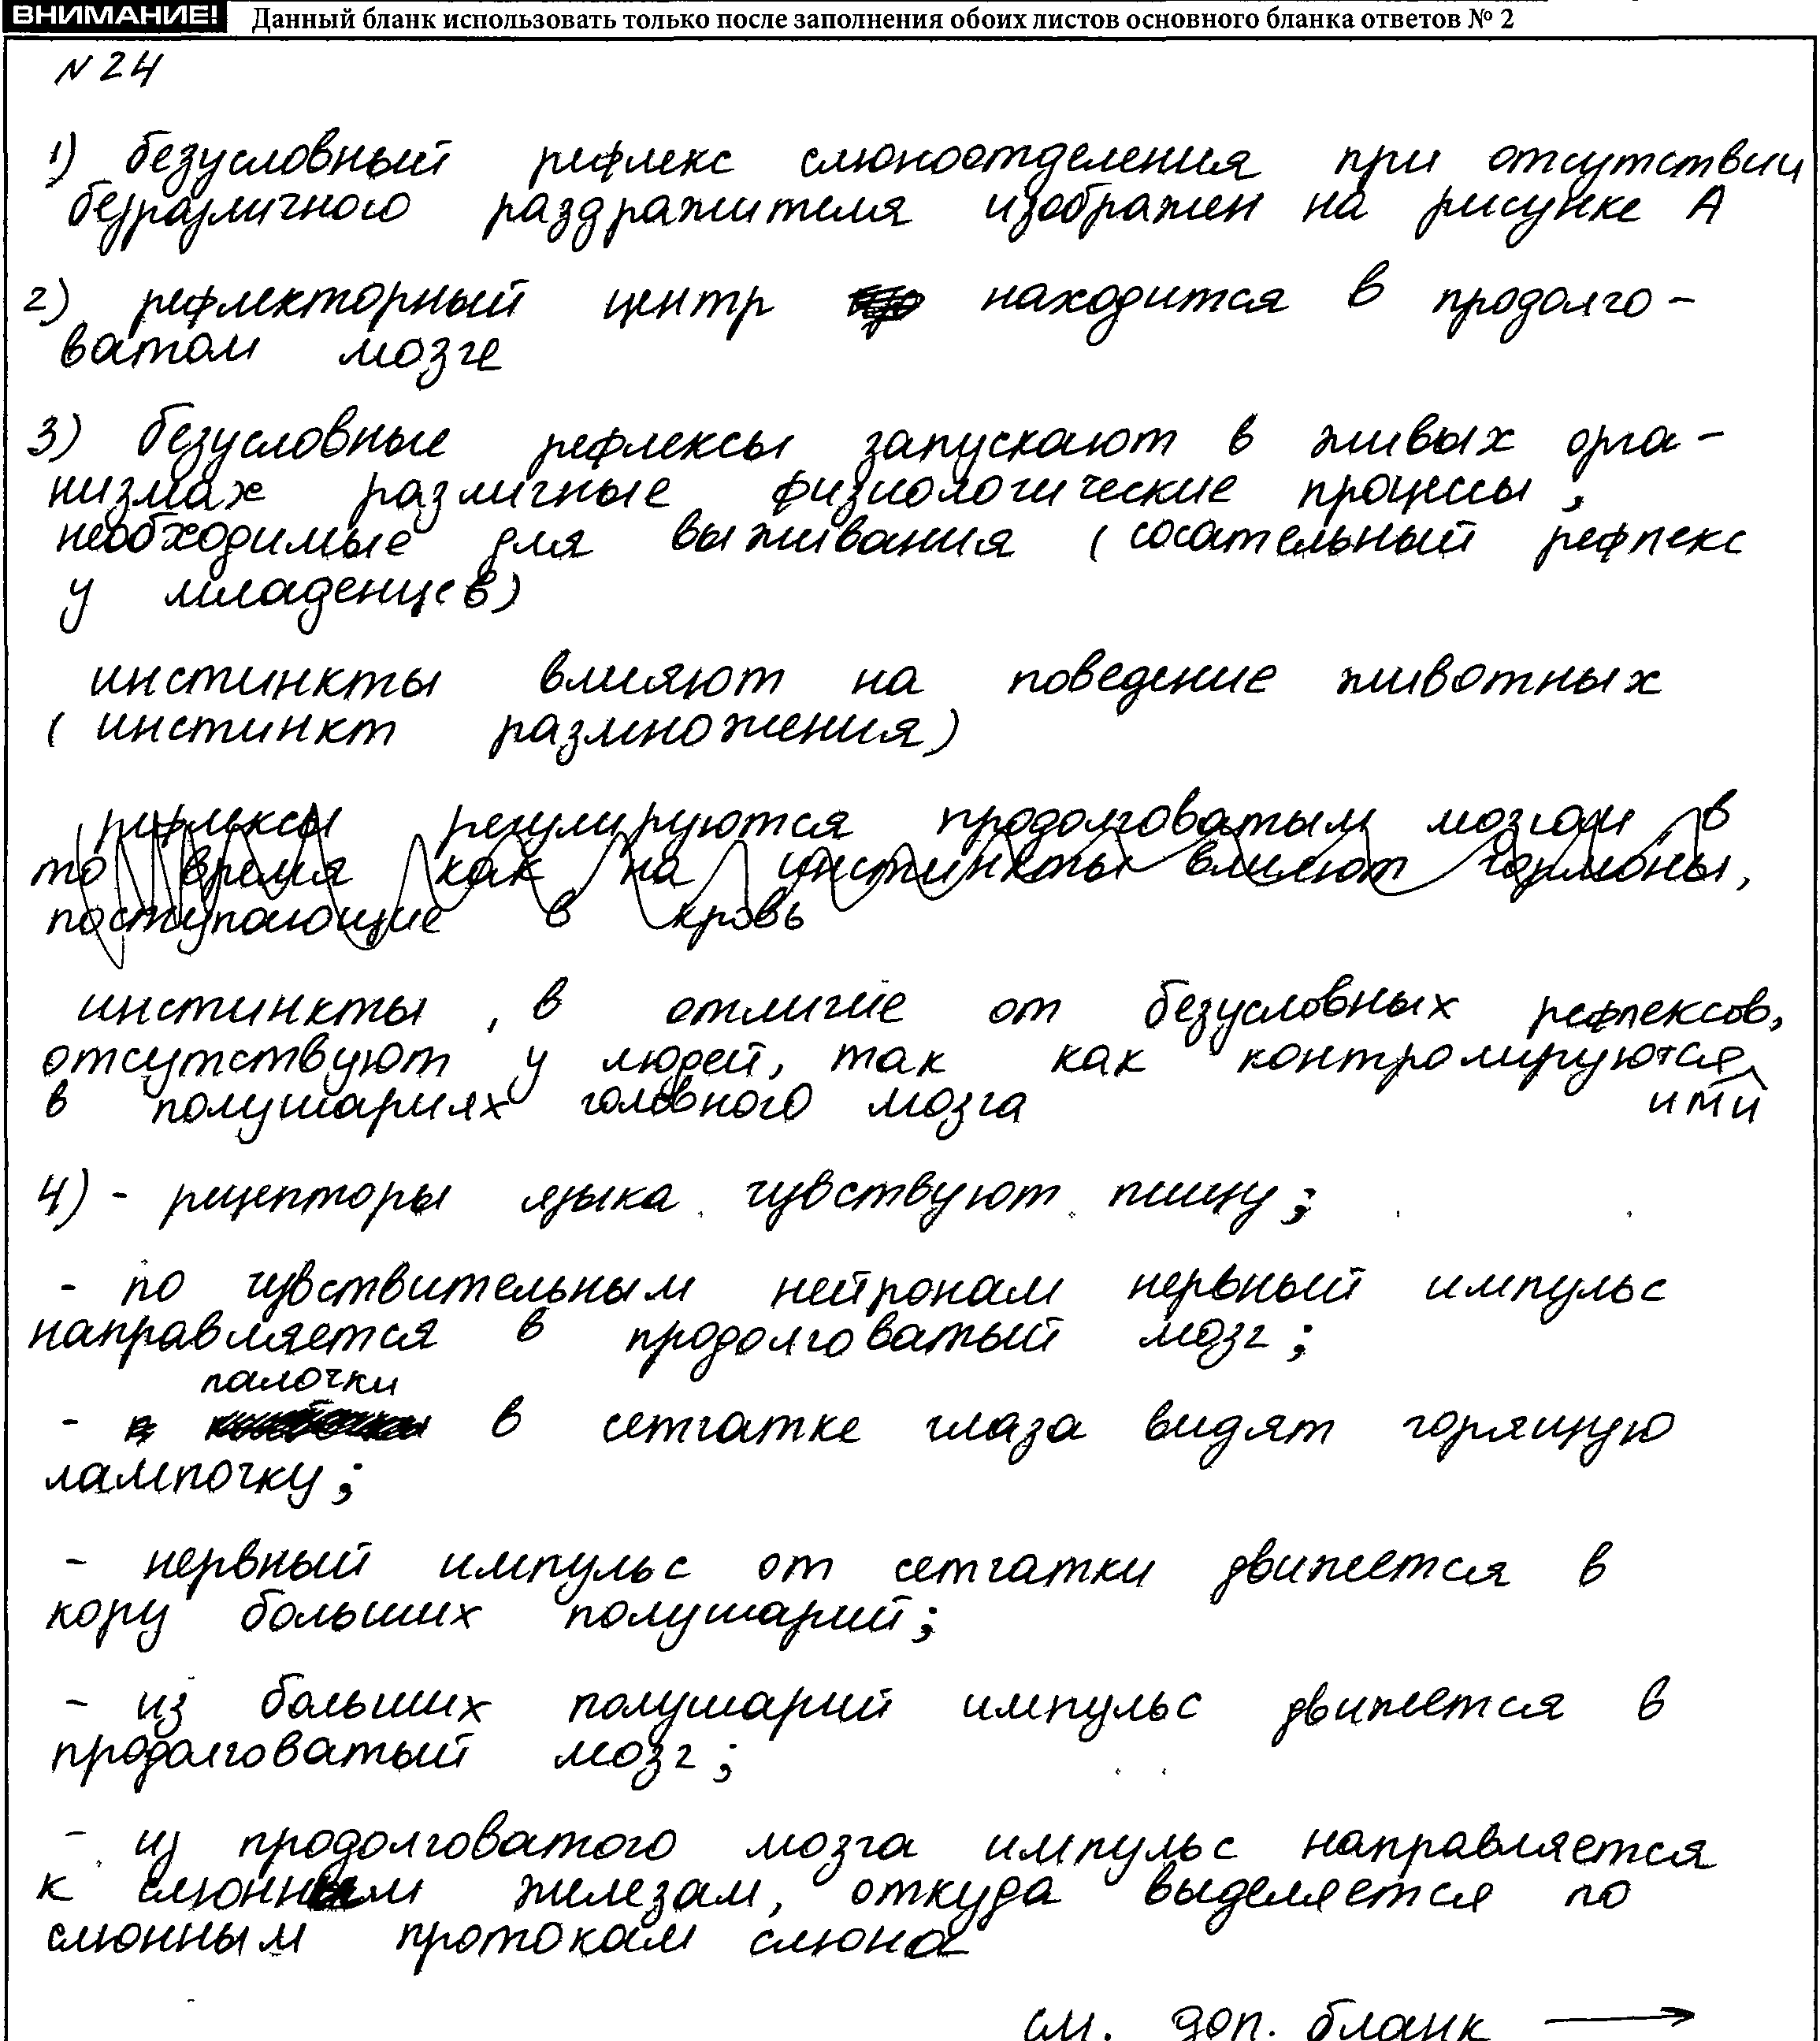 ВНИМАНИЕ! Данный бланк использовать только после заполнения обоих листов основного бланка ответов № 2
N 24
1) безусловный рефлекс слюноотделения при отсутствии
безразличного раздражителя изображен на рисунке А
2) рефлекторный центр находится в продолго-
ватом мозге
3) безусловные рефлексы запускают в живых орга-
низмах различные физиологические процессы,
необходимые для выживания (сосательный рефлекс
у младенцев)
инстинкты влияют на поведение животных
(инстинкт размножения)
рефлексы регулируются продолговатым мозгом в
то время как на инстинкты влияют гормоны,
поступающие в кровь
инстинкты, в отличие от безусловных рефлексов,
отсутствуют у людей, так как контролируются
в полушариях головного мозга ими
4) - рецепторы языка чувствуют пищу;
- по чувствительным нейронам нервный импульс
направляется в продолговатый мозг;
палочки
- в сетчатке глаза видят горящую
лампочку;
- нервный импульс от сетчатки движется в
кору больших полушарий;
- из больших полушарий импульс движется в
продолговатый мозг;
- из продолговатого мозга импульс направляется
к слюнным железам, откуда выделяется по
слюнным протокам слюна
см. доп. бланк →